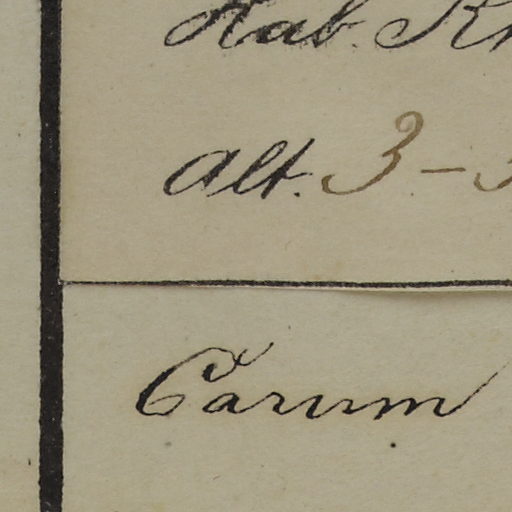 Hab.
Alt. 3 –
Carum